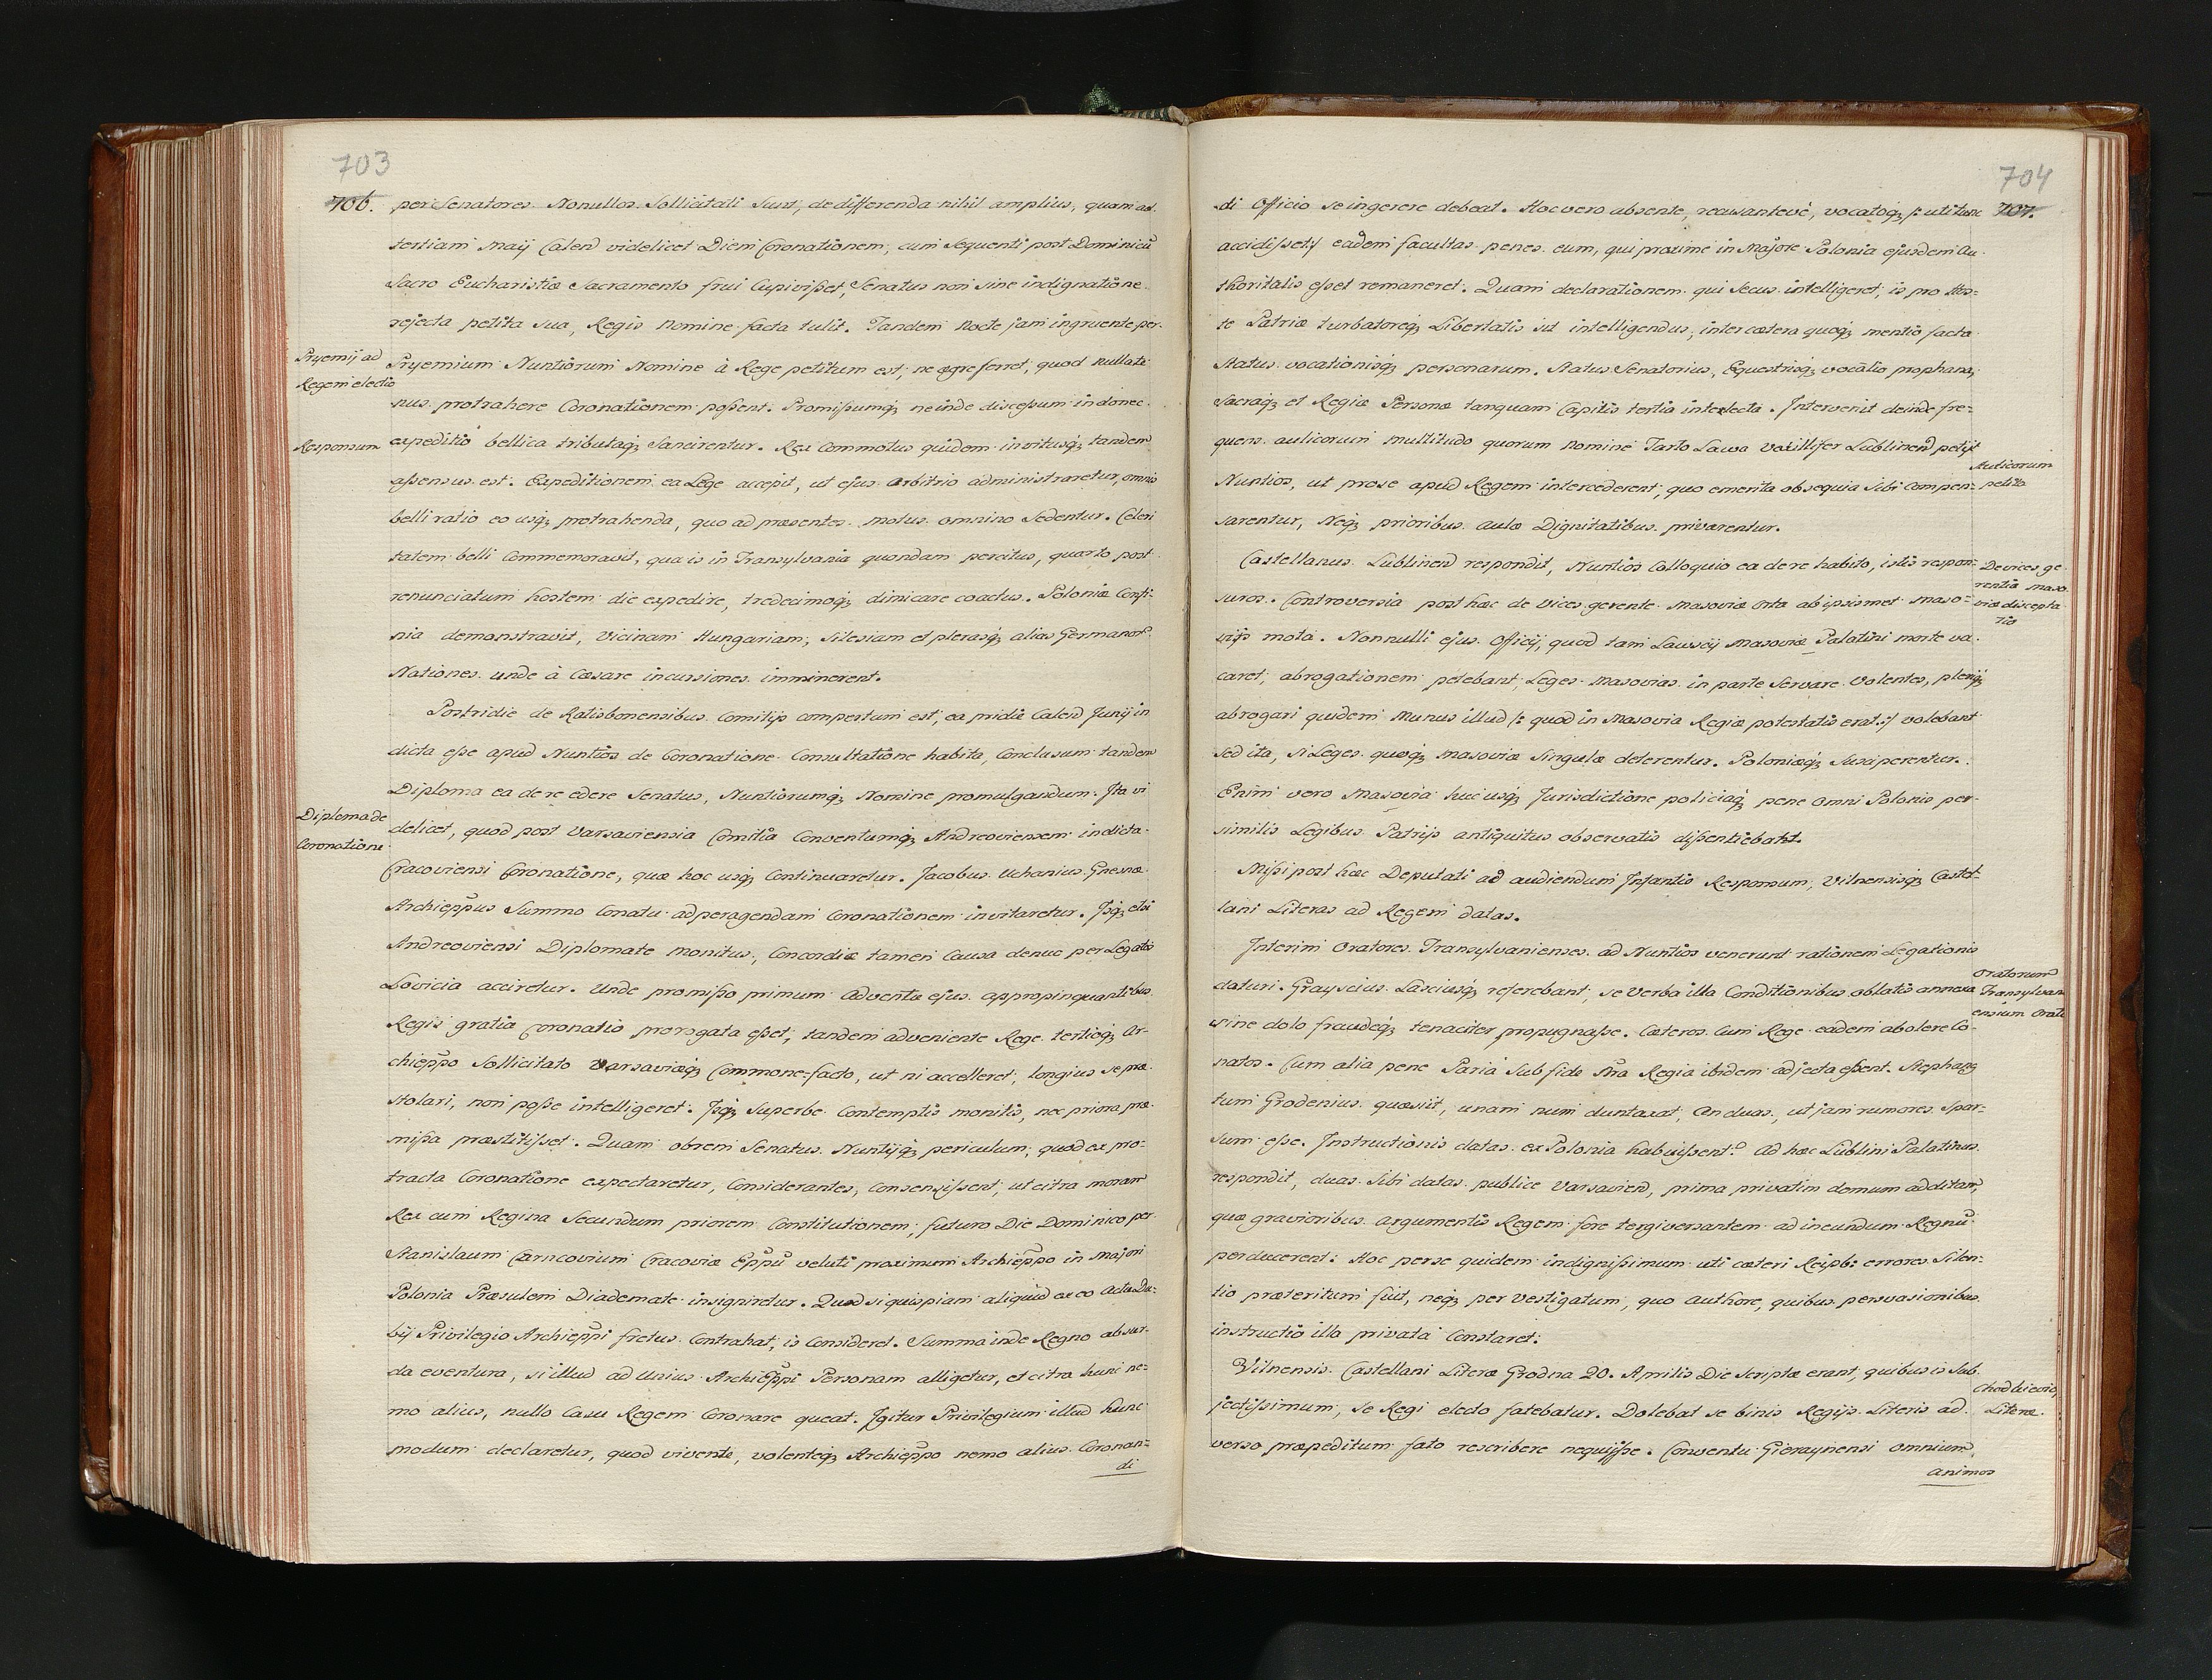 703
706.
per Senatores Nonullos Sollicitati Sunt, de differenda nihil amplius, quam ad
tertiam Maij Calend videlicet Diem Coronationem, cum Sequenti post Dominicũ
Sacro Eucharistiæ Sacramento frui Cupivisset, Senatus non sine indignatione
rejecta petita sua, Regis Nomine facta tulit. Tandem Nocte jam ingruente per
Pryemij ad
Regem electio
Pryemium Nuntiorum Nomine à Rege petitum est, ne ægre ferret, quod nullate
nus protrahere Coronationem possent. Promissumq; ne inde discessum in donec
Responsum
expeditio bellica tributaq; Sancirentur. Rex Commotus quidem invitusq; tandem
assensus est. Expeditionem ea Lege accepit, ut ejus arbitrio administraretur, omnis
belli ratio eo usq; protrahenda, quo ad præsentes motus omnino Sedentur. Celeri
tatem belli Commemoravit, qua is in Transylvania quondam percitus, quarto post
renunciatum hostem die expedire, tredecimoq; dimicare coactus. Poloniæ Confi-
nia demonstravit, Vicinam Hungariam, Silesiam et plerasq; alias Germanor̃
Nationes unde à Cæsare incursiones imminerent.
Postridie de Ratisbonensibus Comitijs compertum est, ea pridie Calend Junij in
dicta esse apud Nuntios de Coronatione Consultatione habita, Conclusum tandem
Diploma ea de re edere Senatus, Nuntiorumq; Nomine promulgandum. Ita vi
Diploma de
Coronatione
delicet, quod post Varsaviensia Comitia Conventumq; Andreoviensem indicta
Cracoviensi Coronatione, quæ hoc usq; Continuaretur. Jacobus Uchanius Gnesnæ
Archieppus Summo Conatu ad peragendam Coronationem invitaretur. Isq; etsi
Andreoviensi Diplomate monitus, Concordiæ tamen Causa denuo per Legatos
Lovicia acciretur. Unde promisso primum adventu ejus appropinquantibus
Regis gratia Coronatio prorogata esset, tandem adveniente Rege tertioq; Ar-
chieppo Sollicitato Varsaviaq; Commone-facto, ut ni accelleret, longius se præ
stolari, non posse intelligeret. Isq; Superbe Contemptis monitis, nec priora pro
missa præstitisset. Quam obrem Senatus Nuntijq; periculum, quod ex pro-
tracta Coronatione expectaretur, Considerantes, Consensissent, ut citra moram
Rex cum Regina Secundum priorem Constitutionem, futuro Die Dominico per
Stanislaum Carncovium Cracoviæ Eppũ veluti proximum Archieppo in Majori
Polonia Præsulem Diademate insigniretur. Quod si quispiam aliquid ex eo acta Du-
bij Privilegio Archieppi fretus Contrahat, is Consideret. Summa inde Regno absur-
da eventura, si illud ad Unius Archieppi Personam alligetur, et citra hunc ne-
mo alius, nullo Casu Regem Coronare queat. Igitur Privilegium illud hunc
modum declaretur, quod vivente, volenteq; Archieppo nemo alius Coronan-
di
704
707.
di Officio se ingerere debeat. Hoc vero absente, recusanteve, vocatoq; /: uti tunc
accidisset:/ eadem facultas penes eum, qui proxime in Majore Polonia ejusdem Au
thoritatis esset remaneret. Quam declarationem qui Secus intelligeret, is pro Hos-
te Patriæ turbatoreq; Libertatis sit intelligendus, inter cætera quoq; mentio facta
Status vocationisq; personarum. Status Senatorius, Equestrisq; vocatio prophana,
Sacraq; et Regiæ Personæ tanquam Capitis tertia interlecta. Intervenit deinde fre-
quens aulicorum multitudo quorum nomine Tarlo Lawa Vexillifer Lublinens petijt
Aulicorum
petita
Nuntios, ut prose apud Regem intercederent, quo emerita obsequia Sibi compen-
sarentur, Neq; prioribus aulæ Dignitatibus privarentur.
Castellanus Lublinens respondit, Nuntios Colloquio ea de re habito, istis respon-
De vices ge
rentia Maso
viæ discepta
tio
suros. Controversia post hæc de Vices gerente Masoviæ orta ab ipsismet Maso-
vijs mota. Nonnulli ejus Officij, quod tam Lawscij Masoviæ Palatini morte va-
caret, abrogationem petebant, Leges Masovias in parte Servare Volentes, pleriq;
abrogari quidem Munus illud /: quod in Masovia Regiæ potestatis erat :/ volebant
sed ita, si Leges quoq; Masoviæ Singulæ deterentur. Poloniæq; Susciperentur.
Enim vero Masovia huc usq; Jurisdictione policiaq; pene omni Polonis per-
similis Legibus Patrijs antiquitus observatis dissentiebant.
Missi post hæc Deputati ad audiendum Infantis Responsum, Vilnensisq; Castel-
lani Literas ad Regem datas.
Interim Oratores Transylvanienses ad Nuntios venerunt rationem Legationis
Oratorum
Transylvani
ensium Orate
daturi. Grayscius Lasciusq; referebant, se Verba illa Conditionibus oblatis annexa
sine dolo fraudeq; tenaciter propugnasse. Cæteros Cum Rege eadem abolere Co-
natos. Cum alia pene Paria Sub fide Sua Regia ibidem adjecta essent. Stephang
tum Grodenius quæsiit, unam num duntaxat, an duas, ut jam rumores Spar-
sum esse. Instructionis datas ex Polonia habuissent? Ad hæc Lublini Palatinus
respondit, duas Sibi datas publice Varsaviens, prima privatim domum additam,
quæ gravioribus argumentis Regem fore tergiversantem ad ineundum Regnũ
perducerent. Hoc perse quidem indignissimum uti cæteri Reipb: errores Silen-
tio præteritum fuit, neq; per vestigatum, quo authore, quibus persvasionibus
instructio illa privata Constaret.
Vilnensis Castellani Literæ Grodna 20. Aprilis Die Scriptæ erant, quibus is Sub-
Chodkievicij
Literæ.
jectissimum, se Regi electo fatebatur. Dolebat se binis Regijs Literis ad-
verso præpeditum fato rescribere nequisse. Conventu Gieraynensi omnium
animos